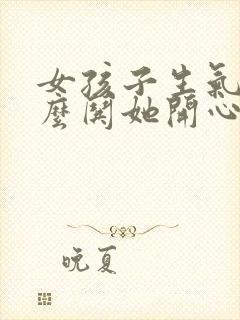 女孩子生氣
麼鬨她開心
晚夏